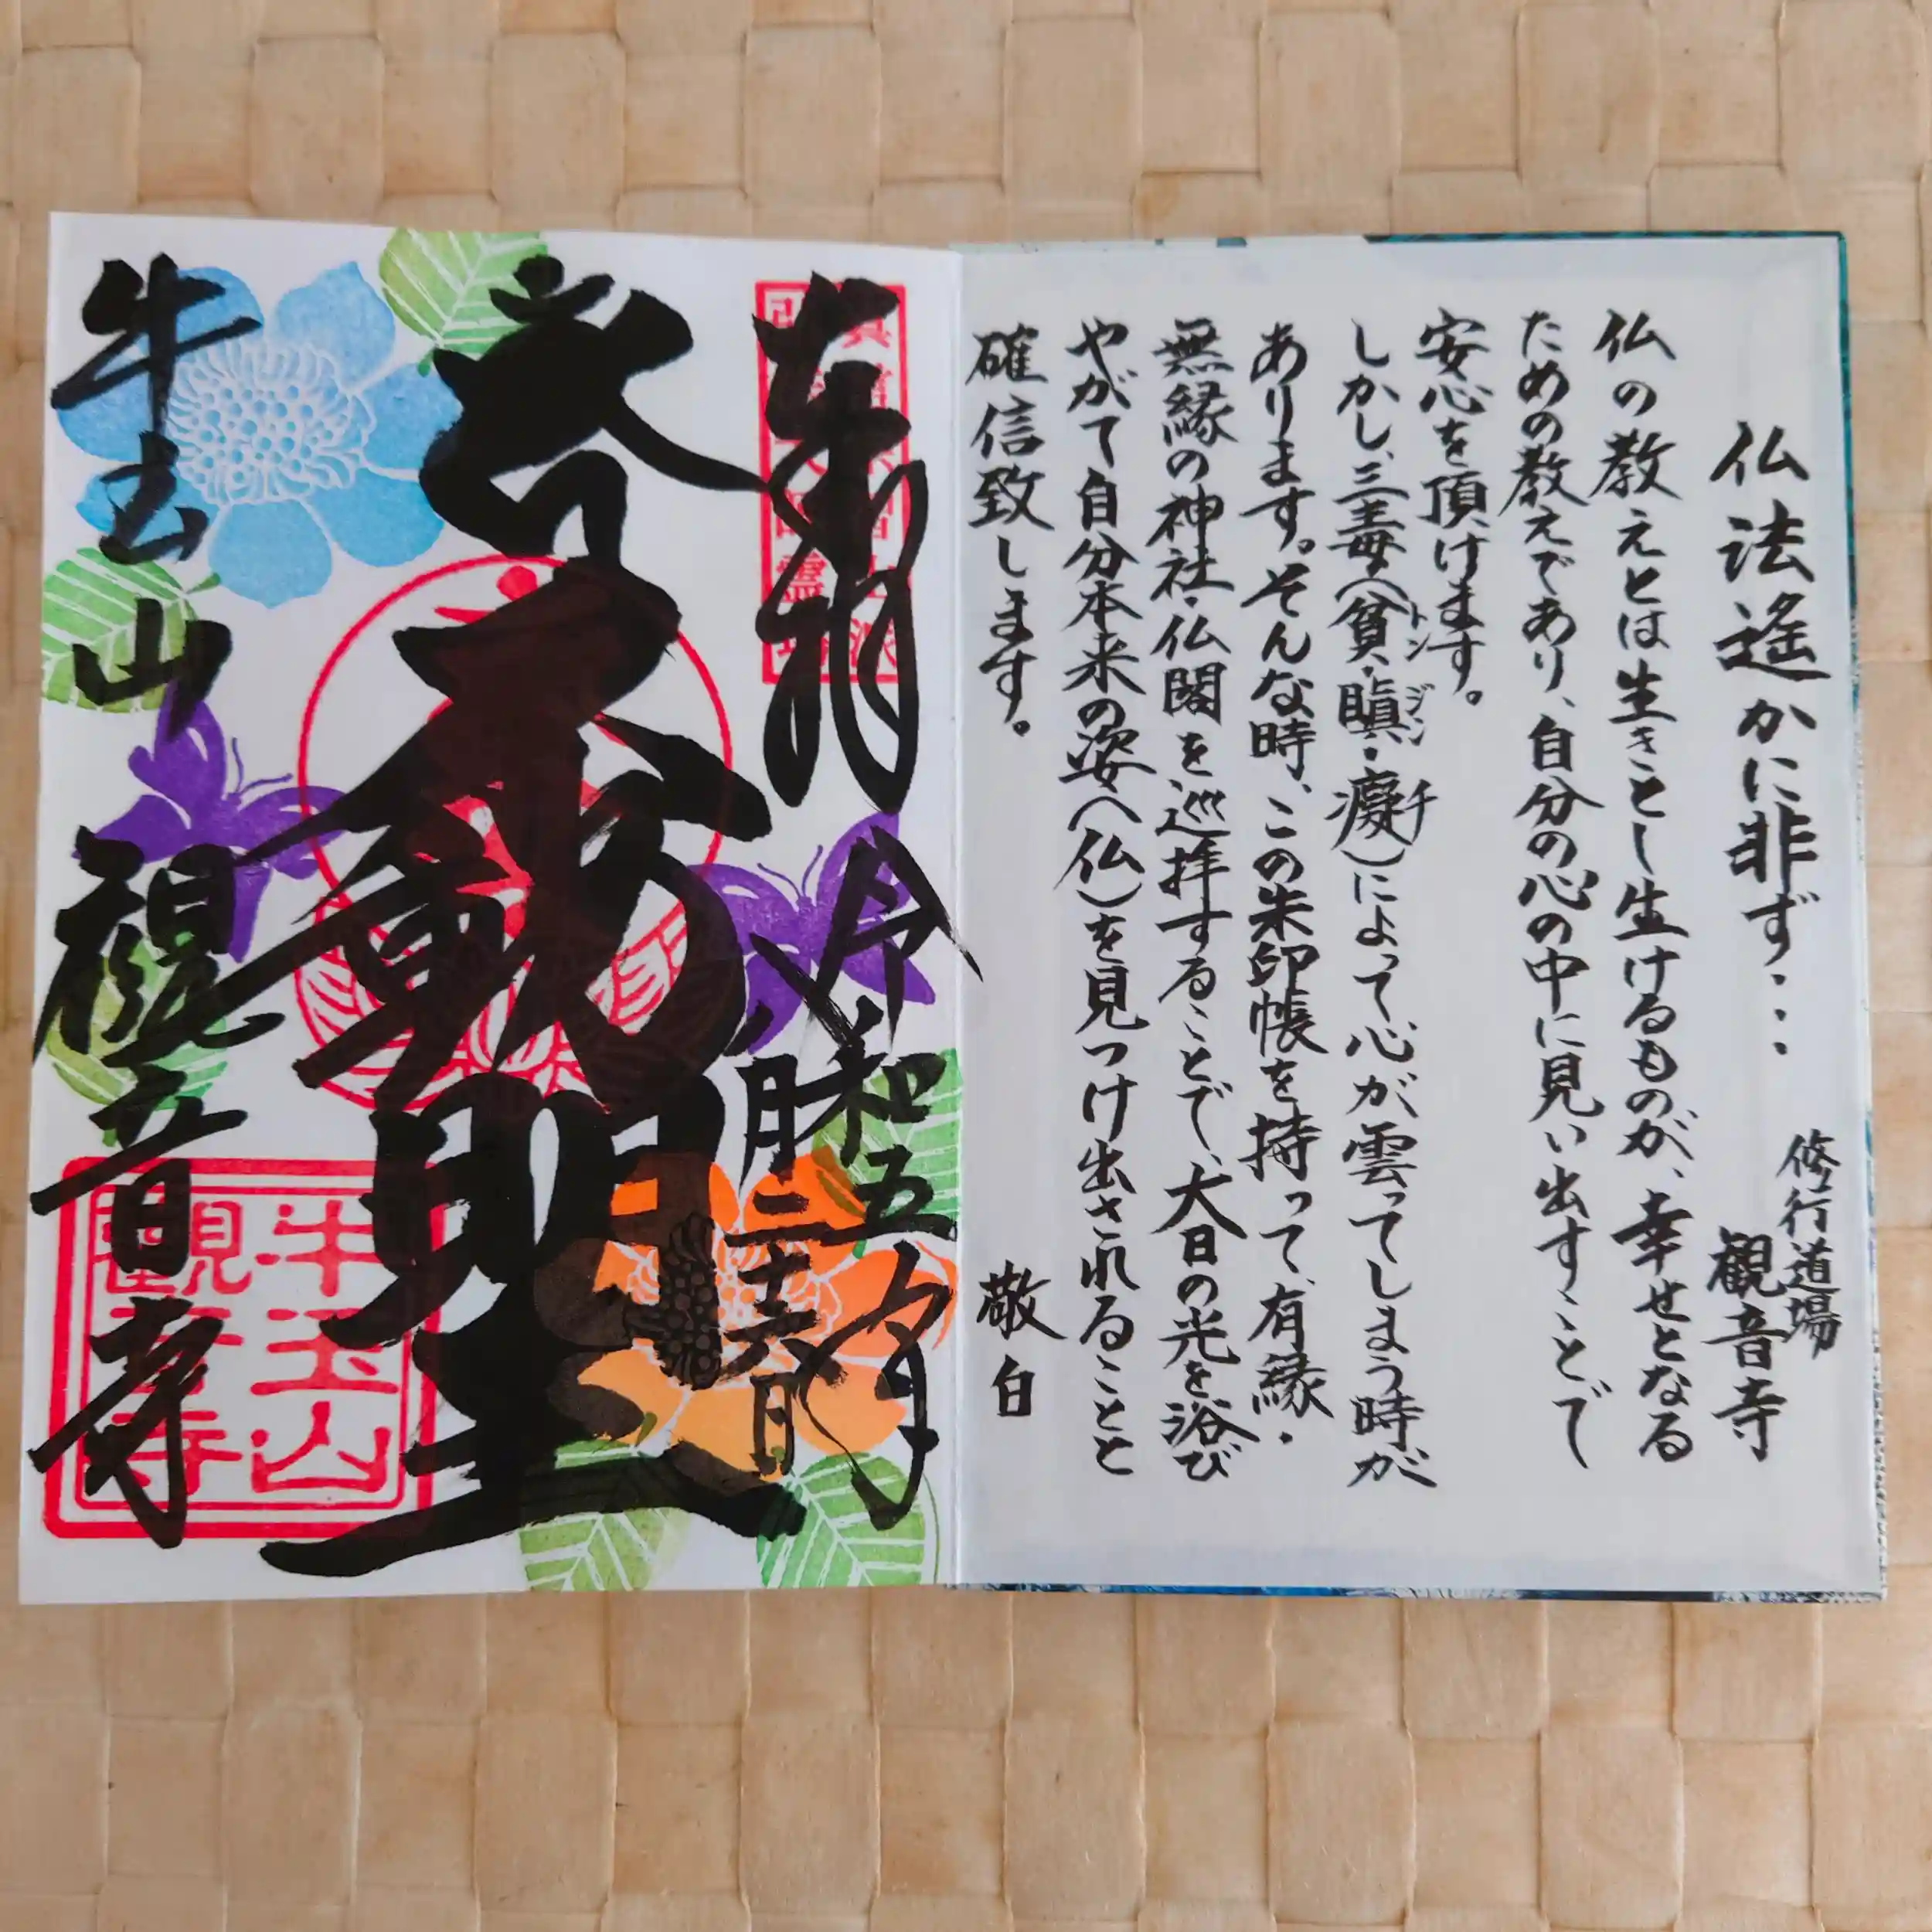 仏法遙かに非ず・・・
修行道場
観音寺
仏の教えとは生きとし生けるものが、幸せとなる
ための教えであり、自分の心の中に見い出すことで
安心を頂けます。
しかし、三毒(貧・瞋・癡)によって心が雲ってしまう時が
トン ジン チ
あります。そんな時、この朱印帳を持って、有縁・
無縁の神社・仏閣を巡拝することで、大日の光を浴び
やがて自分本来の姿(仏)を見つけ出されることと
確信致します。
敬白
奉拝
令和五年
八月二十六日
不動明王
牛玉山
観音寺
牛玉山
觀音寺